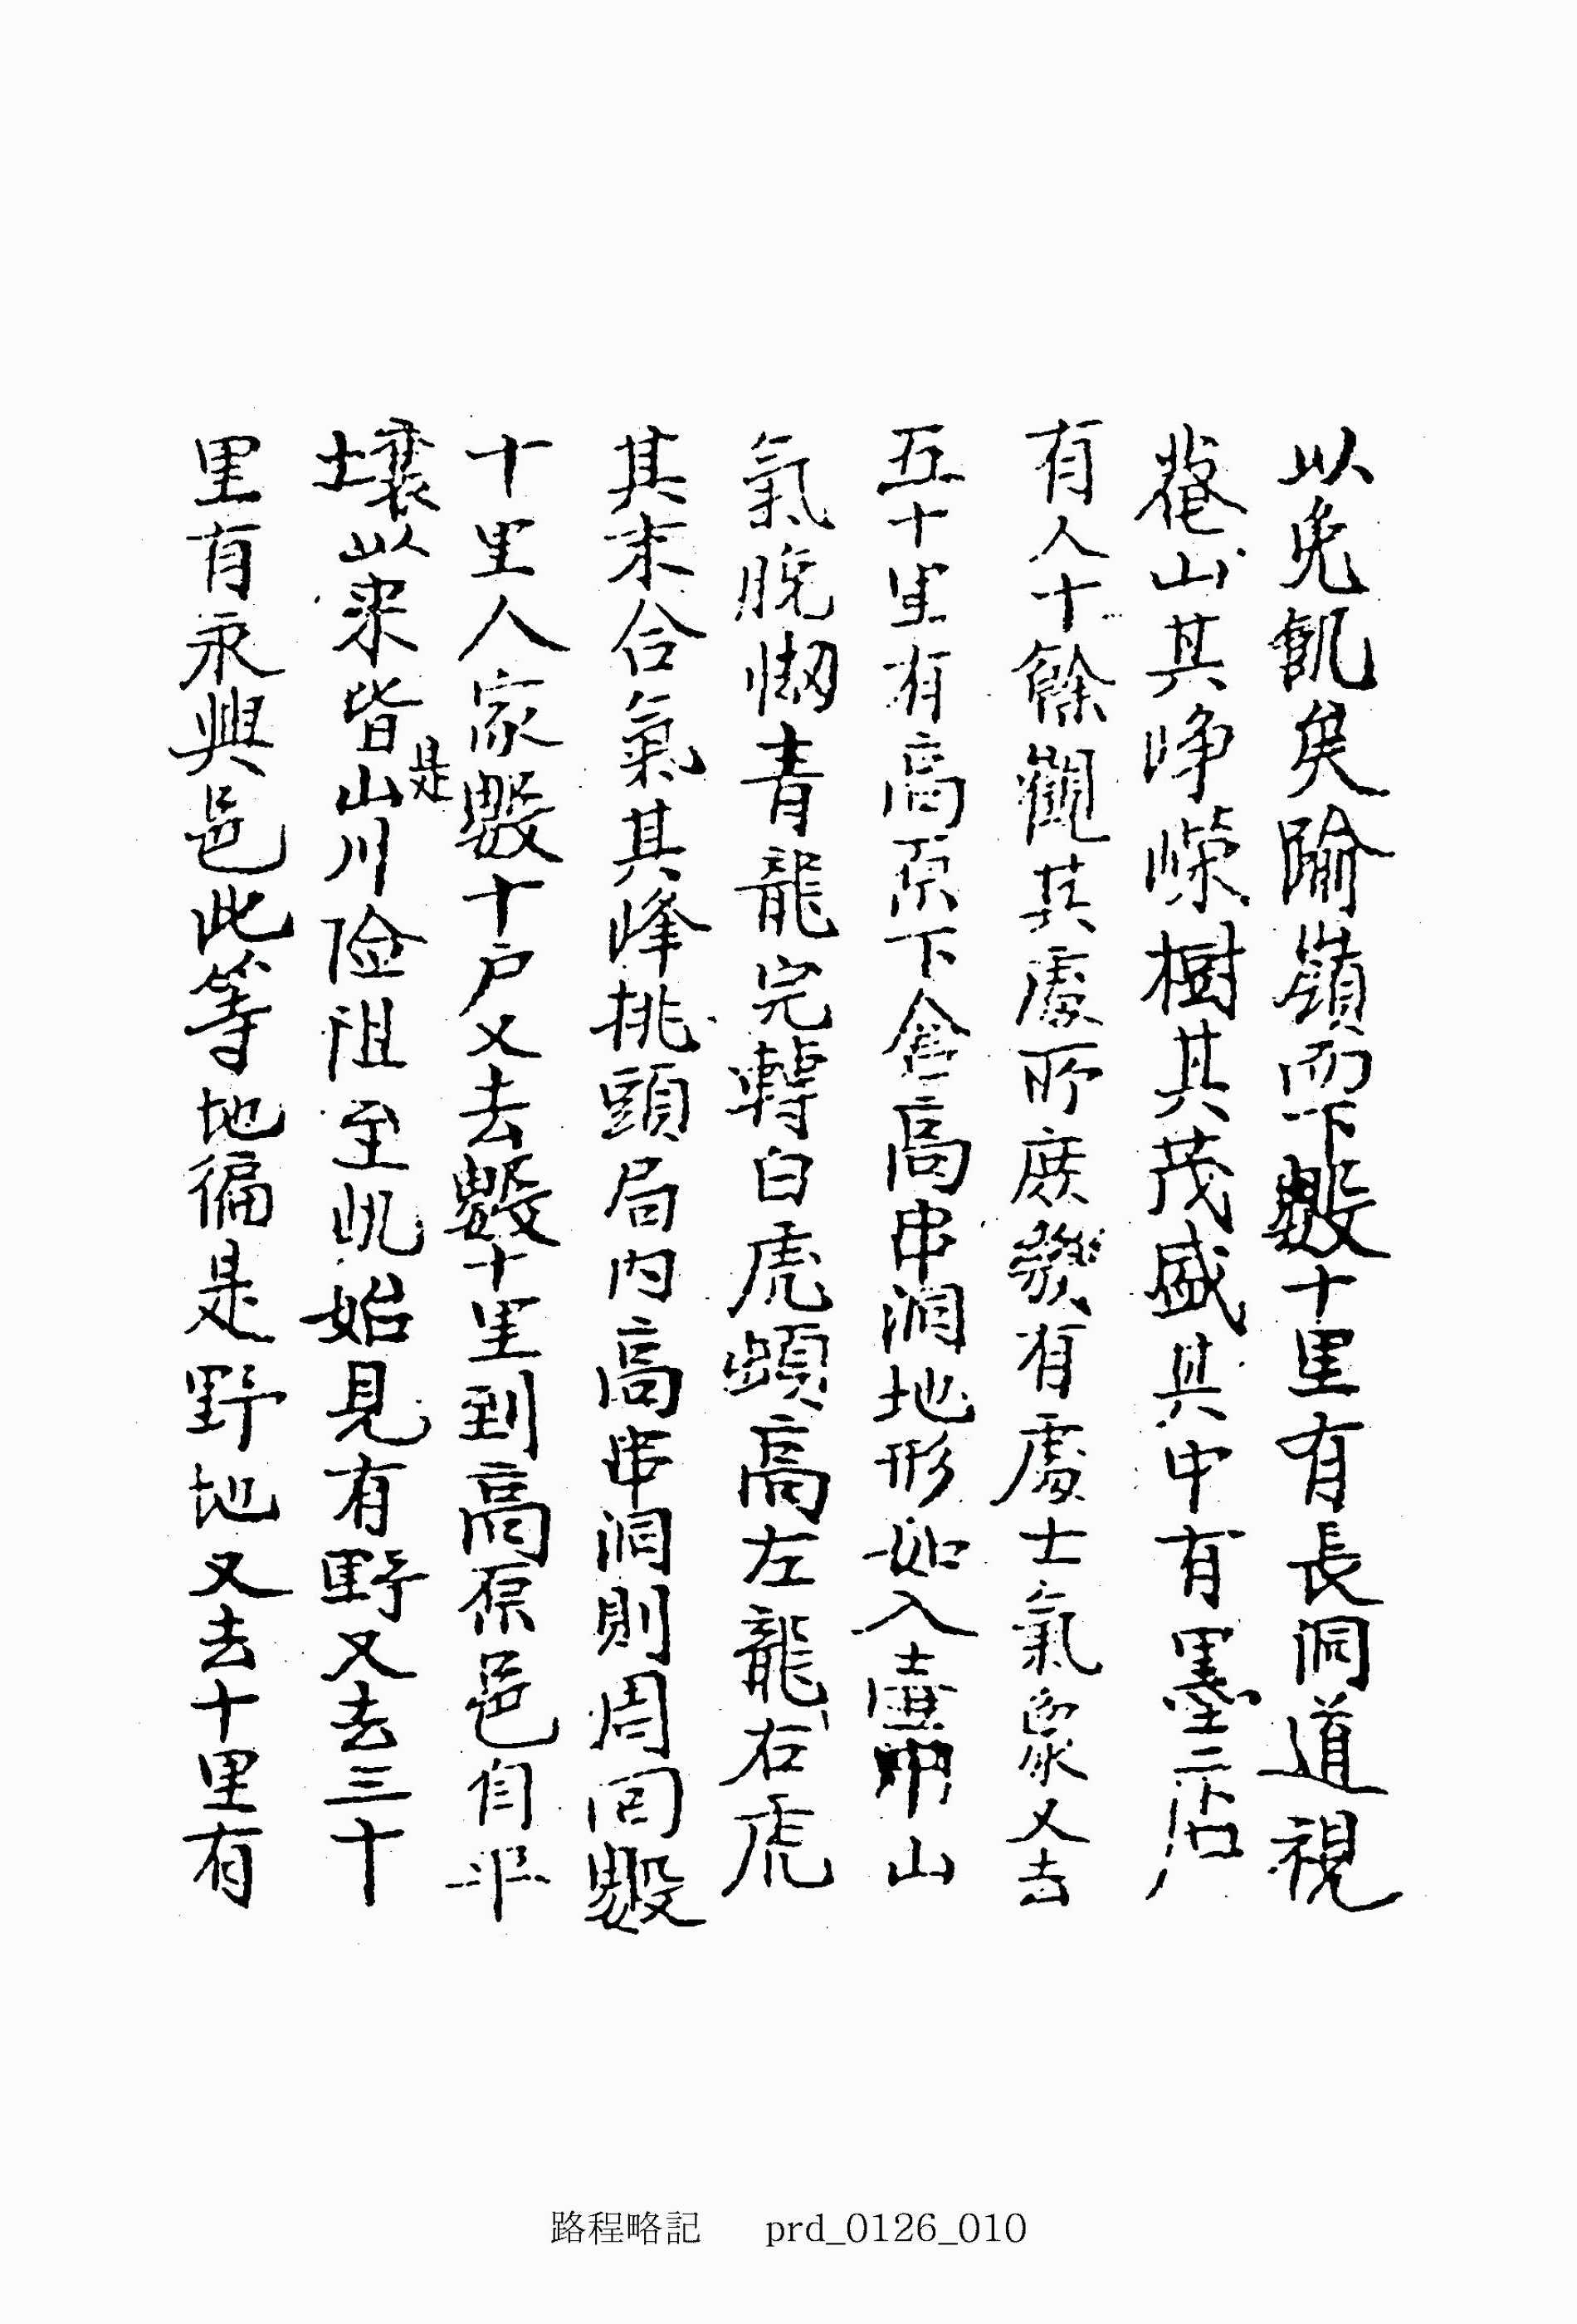 以免飢矣踰嶺而下數十里有長洞道視
蒼山其崢嶸樹其茂盛其中有墨店
有人十餘觀其處所庶幾有處士氣象又去
五十里有高原下舍高串洞地形如入壺中山
氣脫㥘青龍完轉白虎頭高左龍右虎
其末合氣其峰挑頭局內高串洞則周回數
十里人家數十戶又去數十里到高原邑自平
壤以來皆是山川險阻至此始見有野又去三十
里有永興邑此等地徧是野地又去十里有
路程略記 prd_0126_010